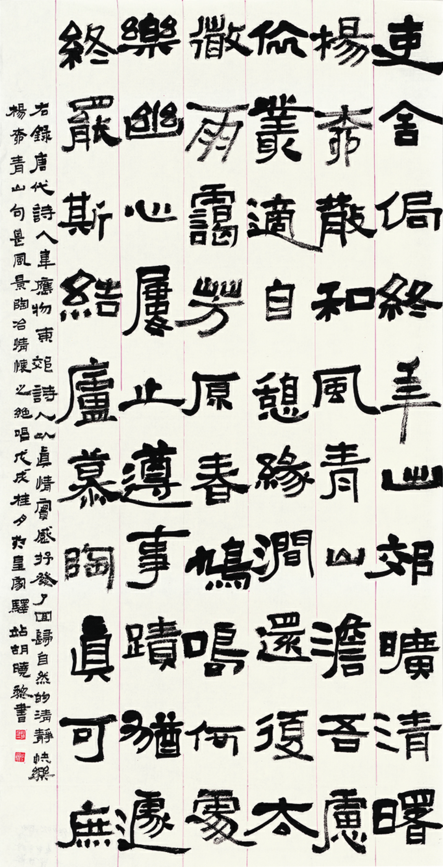 吏舍侷終年出郊曠清曙
楊桺散和風青山澹吾慮
依叢適自憩緣澗還復去
微雨靄芳原春鳩鳴何處
樂幽心屢止遵事蹟猶遽
終罷斯結廬慕陶眞可庶
右錄唐代詩人韋應物東郊詩人以眞情實感抒發了回歸自然的清靜快樂
楊桺青山句是風景陶冶情懷之絕唱戊戌桂月於皇家驛站胡曉黎書